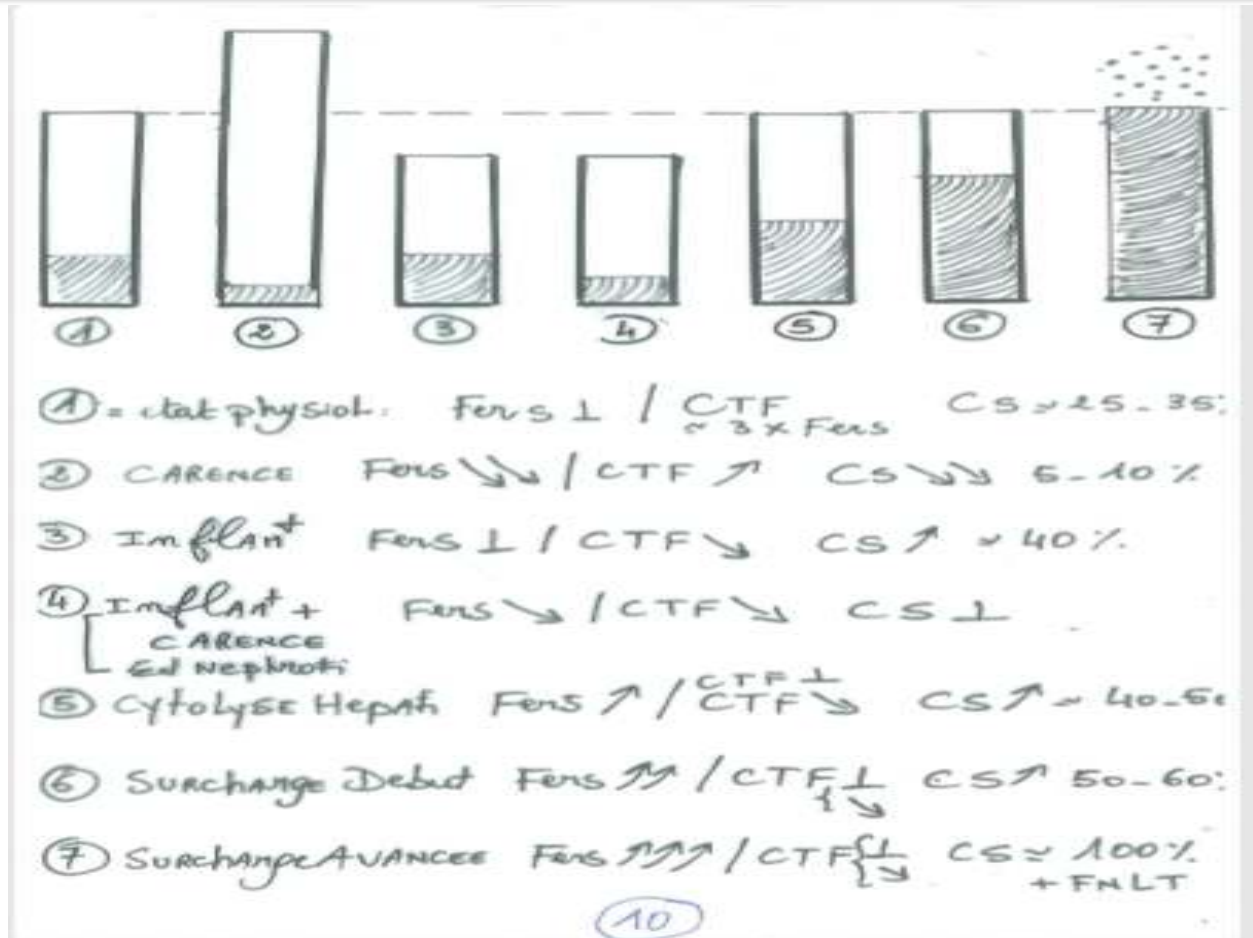 ① ② ③ ④ ⑤ ⑥ ⑦
① = état physiol. Fer s ⊥ / CTF ~ 3 x Fers CS ~ 25-35
② CARENCE Fers ↘↘ / CTF ↗ CS ↘↘ 5-10 %
③ InflAm^t Fers ⊥ / CTF ↘ CS ↗ ~ 40 %.
④ InflAm^t + Fers ↘ / CTF ↘ CS ⊥
CARENCE
Sd Nephroti
⑤ CytolySE HepAti Fers ↗ / CTF ⊥ CTF ↘ CS ↗ ~ 40-50
⑥ SURchARGE Debut Fers ↗↗ / CTF { ⊥ ↘ CS ↗ 50-60
⑦ SURchARGE AVANCEE Fers ↗↗↗ / CTF { ⊥ ↘ CS ≃ 100 %
+ FNLT
10